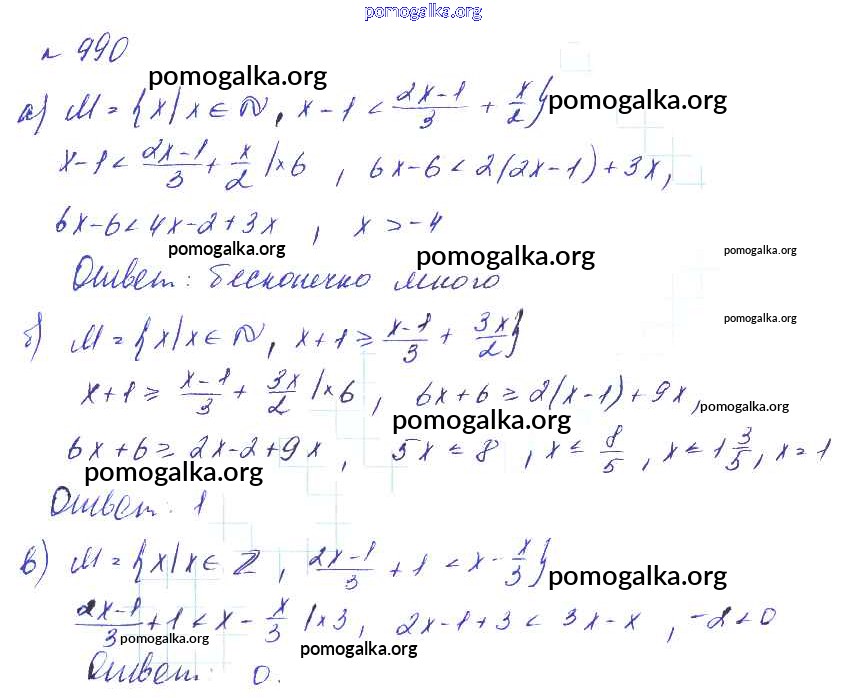 pomogalka.org
№ 990
pomogalka.org
а) M = {x | x ∈ N, x - 1 < (2x-1)/3 + x/2} pomogalka.org
x - 1 < (2x-1)/3 + x/2 | × 6 , 6x - 6 < 2(2x - 1) + 3x,
6x - 6 < 4x - 2 + 3x , x > -4
pomogalka.org pomogalka.org pomogalka.org
Ответ: бесконечно много
pomogalka.org
б) M = {x | x ∈ N, x + 1 ≥ (x-1)/3 + 3x/2}
x + 1 ≥ (x-1)/3 + 3x/2 | × 6 , 6x + 6 ≥ 2(x - 1) + 9x, pomogalka.org
pomogalka.org
6x + 6 ≥ 2x - 2 + 9x , 5x ≤ 8 , x ≤ 8/5 , x ≤ 1 3/5 , x = 1
pomogalka.org
Ответ: 1
в) M = {x | x ∈ Z , (2x-1)/3 + 1 < x - x/3} pomogalka.org
(2x-1)/3 + 1 < x - x/3 | × 3 , 2x - 1 + 3 < 3x - x , -2 < 0
pomogalka.org pomogalka.org
Ответ: 0.